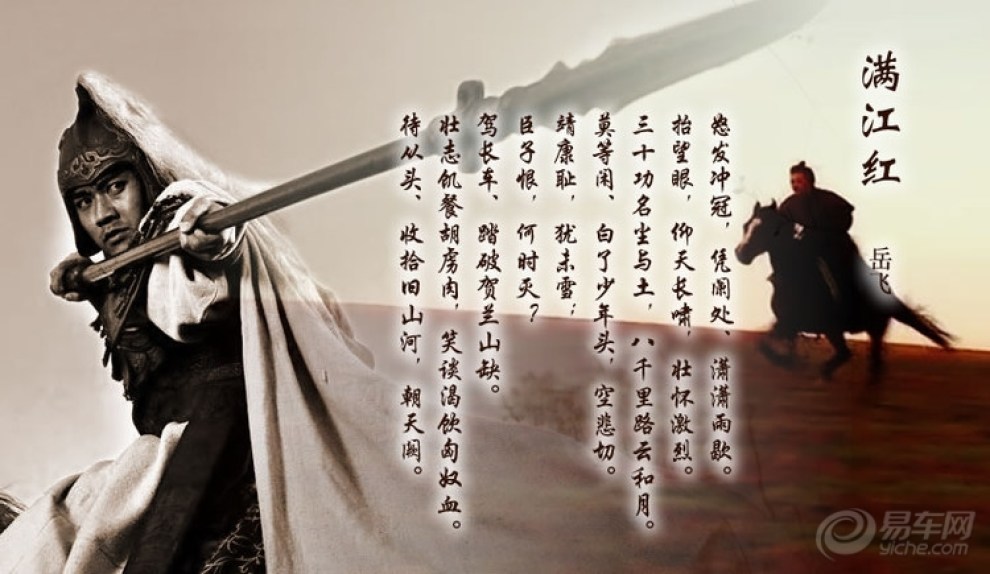 满江红
岳飞
怒发冲冠，凭阑处、潇潇雨歇。
抬望眼，仰天长啸，壮怀激烈。
三十功名尘与土，八千里路云和月。
莫等闲、白了少年头，空悲切。
靖康耻，犹未雪；
臣子恨，何时灭？
驾长车、踏破贺兰山缺。
壮志饥餐胡虏肉，笑谈渴饮匈奴血。
待从头、收拾旧山河，朝天阙。
易车网
yiche.com